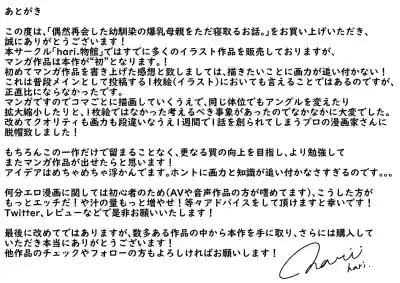 あとがき
この度は、「偶然再会した幼馴染の爆乳母親をただ寝取るお話。」をお買い上げいただき、
誠にありがとうございます！
本サークル「hari.物館」ではすでに多くのイラスト作品を販売しておりますが、
マンガ作品は本作が“初”となります。！
初めてマンガ作品を書き上げた感想と致しましては、描きたいことに画力が追い付かない！
これは普段メインとして投稿する1枚絵(イラスト)においても言えることではあるのですが、
正直比にならなかったです。
マンガですのでコマごとに描画していくうえで、同じ体位でもアングルを変えたり
拡大縮小したりと、1枚絵ではなかった考えるべき事象があったのでなかなかに大変でした。
改めてクオリティも画力も段違いなうえ1週間で1話を創られてしまうプロの漫画家さんに
脱帽致しました！
もちろんこの一作だけで留まることなく、更なる質の向上を目指し、より勉強して
またマンガ作品が出せたらと思います！
アイデアはめちゃめちゃ浮かんでます。ホントに画力と知識が追い付かなさすぎるのです。。。
何分エロ漫画に関しては初心者のため(AVや音声作品の方が嗜めてます)、こうした方が
もっとエッチだ！や汁の量もっと増やせ！等々アドバイスをして頂けますと幸いです！
Twitter、レビューなどで是非お願いいたします！
最後に改めてではありますが、数多ある作品の中から本作を手に取り、さらには購入して
いただき本当にありがとうございます！
他作品のチェックやフォローの方もよろしければお願いします！
hari
hari.